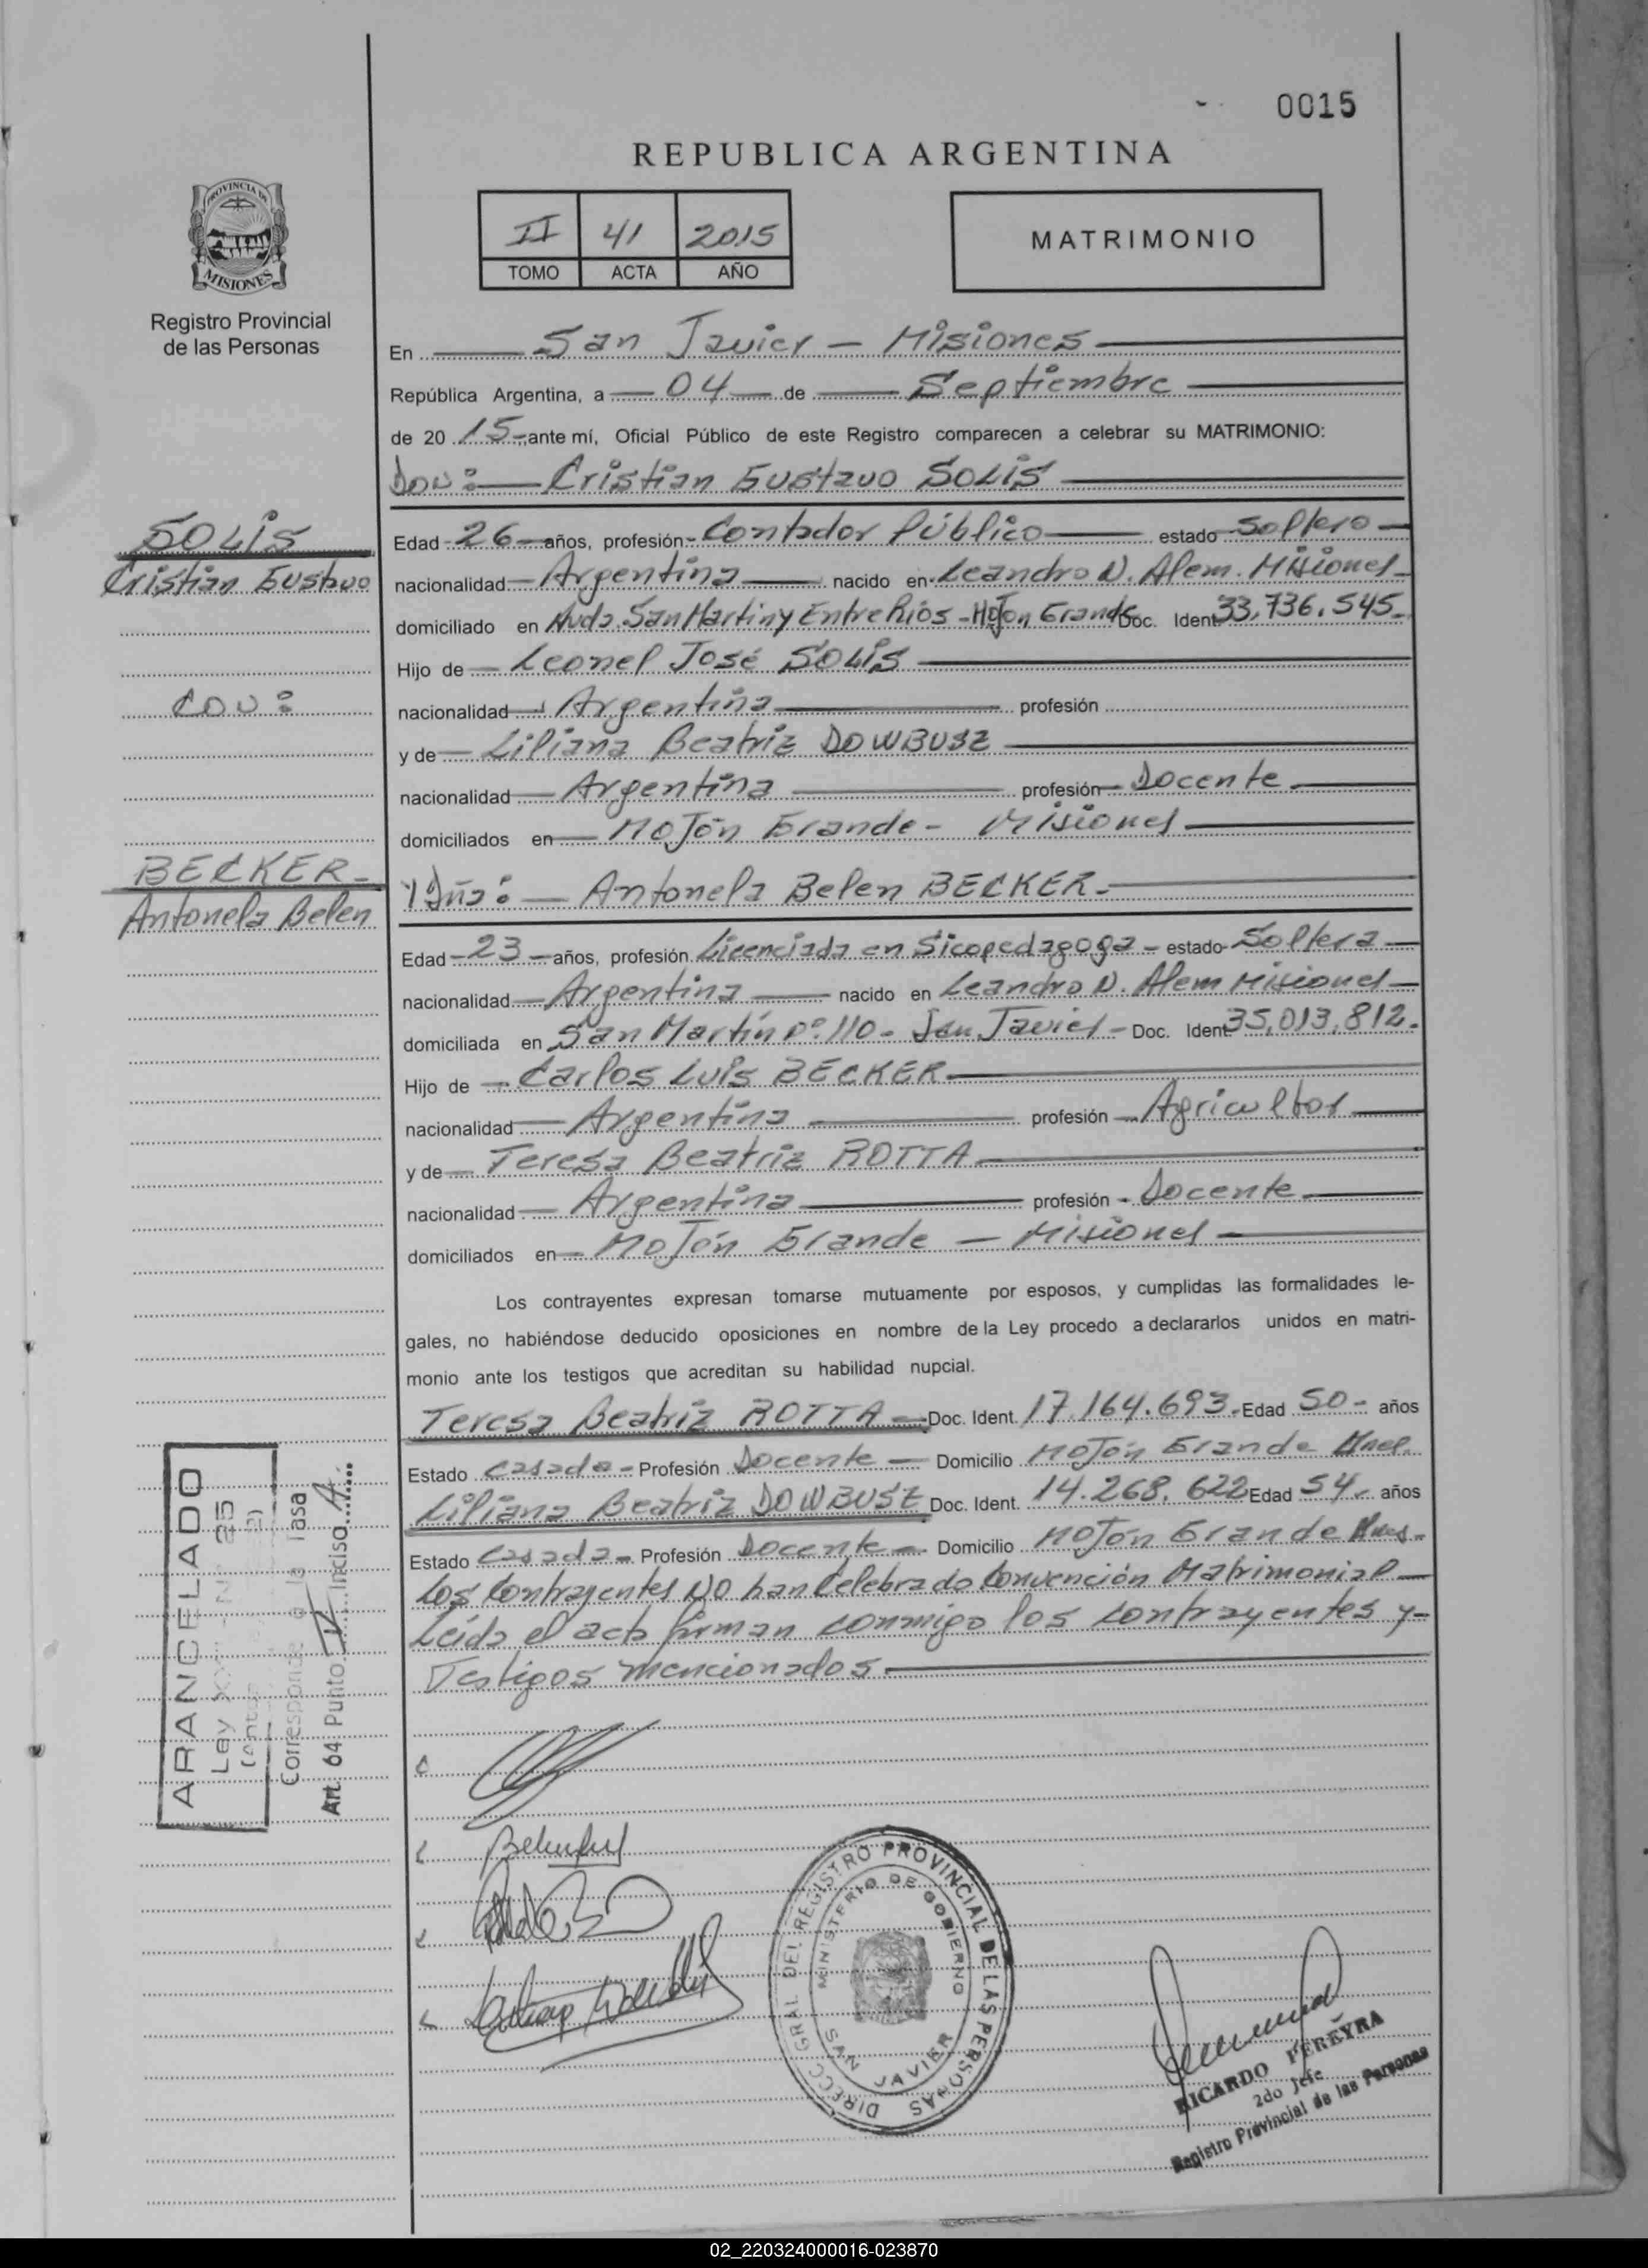 0015
REPUBLICA ARGENTINA
PROVINCIA DE
MISIONES
Registro Provincial
de las Personas
II 41 2015
TOMO ACTA AÑO
MATRIMONIO
En San Javier - Misiones
República Argentina, a 04 de Septiembre
de 20 15 ante mí, Oficial Público de este Registro comparecen a celebrar su MATRIMONIO:
Don: Cristian Gustavo SOLIS
SOLIS
Cristian Gustavo
con:
BECKER
Antonela Belen
Edad 26 años, profesión Contador Público estado soltero
nacionalidad Argentina nacido en Leandro N. Alem. Misiones
domiciliado en Avda. San Martin y Entre Rios - Mojon Grande Doc. Ident 33.736.545
Hijo de Leonel José SOLIS
nacionalidad Argentina profesión
y de Liliana Beatriz DOWBUSZ
nacionalidad Argentina profesión Docente
domiciliados en Mojón Grande - Misiones
Y Dña: Antonela Belen BECKER
Edad 23 años, profesión Licenciada en Sicopedagoga estado Soltera
nacionalidad Argentina nacido en Leandro N. Alem Misiones
domiciliada en San Martín nº 110 - San Javier Doc. Ident 35.013.812
Hijo de Carlos Luis BECKER
nacionalidad Argentina profesión Agricultor
y de Teresa Beatriz ROTTA
nacionalidad Argentina profesión Docente
domiciliados en Mojón Grande - Misiones
Los contrayentes expresan tomarse mutuamente por esposos, y cumplidas las formalidades le-
gales, no habiéndose deducido oposiciones en nombre de la Ley procedo a declararlos unidos en matri-
monio ante los testigos que acreditan su habilidad nupcial.
Teresa Beatriz ROTTA Doc. Ident. 17.164.693 Edad 50 años
Estado casada Profesión Docente Domicilio Mojón Grande
Liliana Beatriz DOWBUSZ Doc. Ident. 14.268.622 Edad 54 años
Estado casada Profesión Docente Domicilio Mojón Grande
Los contrayentes NO han Celebrado Convención Matrimonial
Leida el acta firman conmigo los contrayentes y
Testigos mencionados
ARANCELADO
Ley
Corresponde a la Tasa
Art. 64 Punto IV Inciso A
DIRECC GRAL DEL REGISTRO PROVINCIAL DE LAS PERSONAS
MINISTERIO DE GOBIERNO
SAN JAVIER
RICARDO PEREYRA
2do Jefe
Registro Provincial de las Personas
02_220324000016-023870